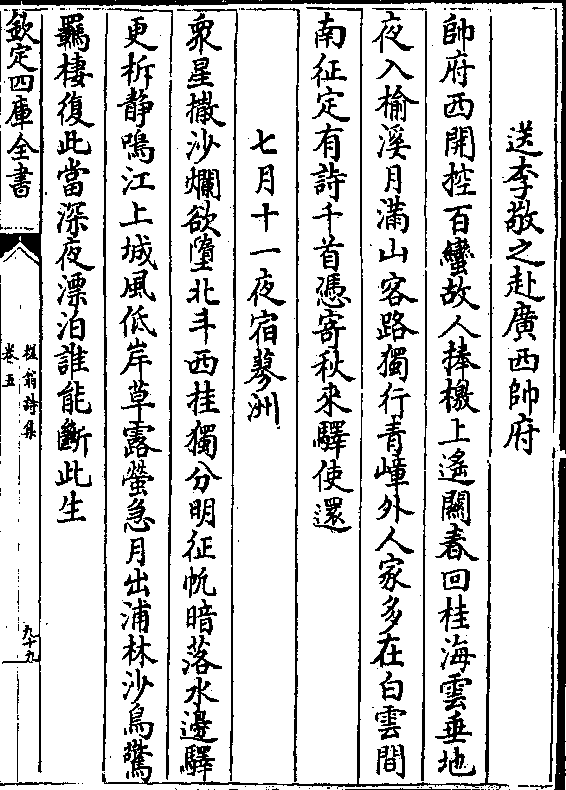 送李敬之赴廣西帥府
帥府西開控百蠻故人捧檄上遙關春回桂海雲垂地
夜入榆溪月滿山客路獨行青嶂外人家多在白雲間
南征定有詩千首憑寄秋來驛使還
七月十一夜宿蓼洲
衆星撒沙爛欲墮北斗西挂獨分明征帆暗落水邊驛
更柝靜鳴江上城風低岸草露螢急月出浦林沙鳥驚
羈棲復此當深夜漂泊誰能斷此生
欽定四庫全書
翁詩集
卷五
九十九